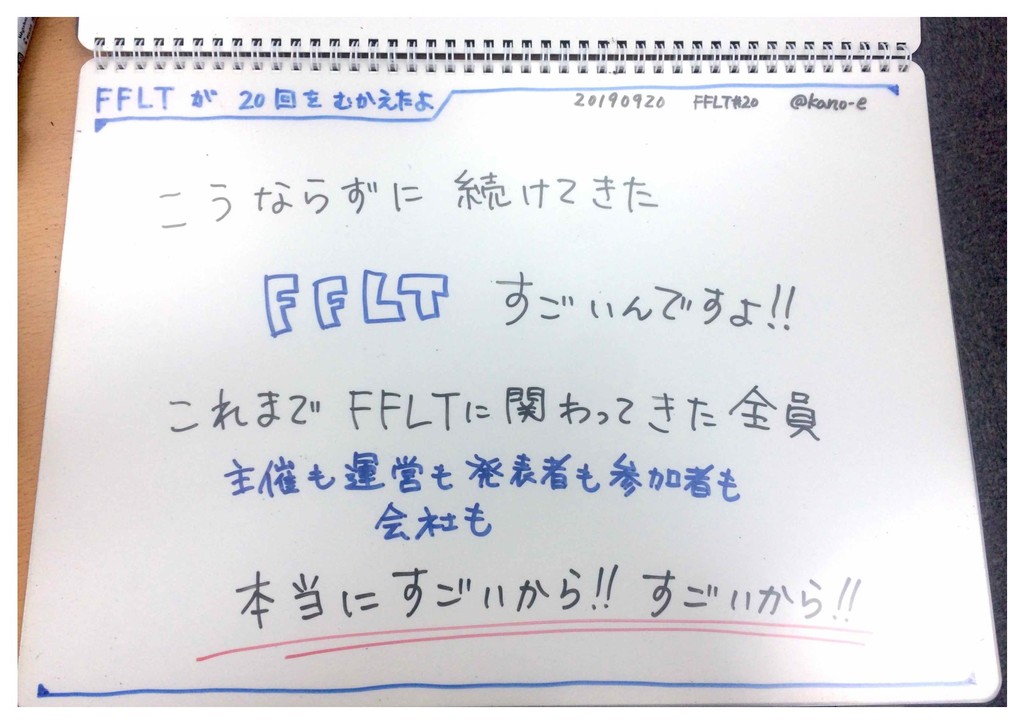 FFLTが20回をむかえたよ
20190920 FFLT#20 @kano-e
こうならずに続けてきた
FFLT すごいんですよ!!
これまでFFLTに関わってきた全員
主催も運営も発表者も参加者も
会社も
本当にすごいから!! すごいから!!